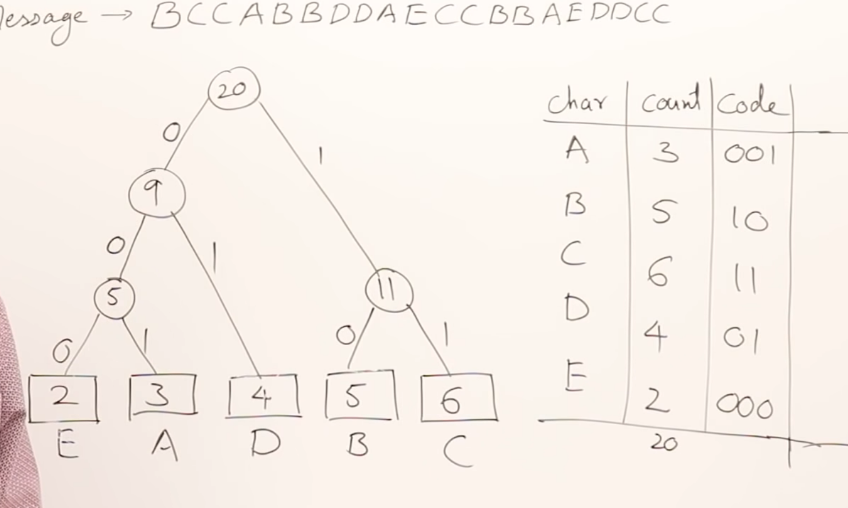 essage → BCCABBDDAECCBBAEDDCC
20
0 1
9
0 1
5 11
0 1 0 1
2 3 4 5 6
E A D B C
char count Code
A 3 001
B 5 10
C 6 11
D 4 01
E 2 000
20